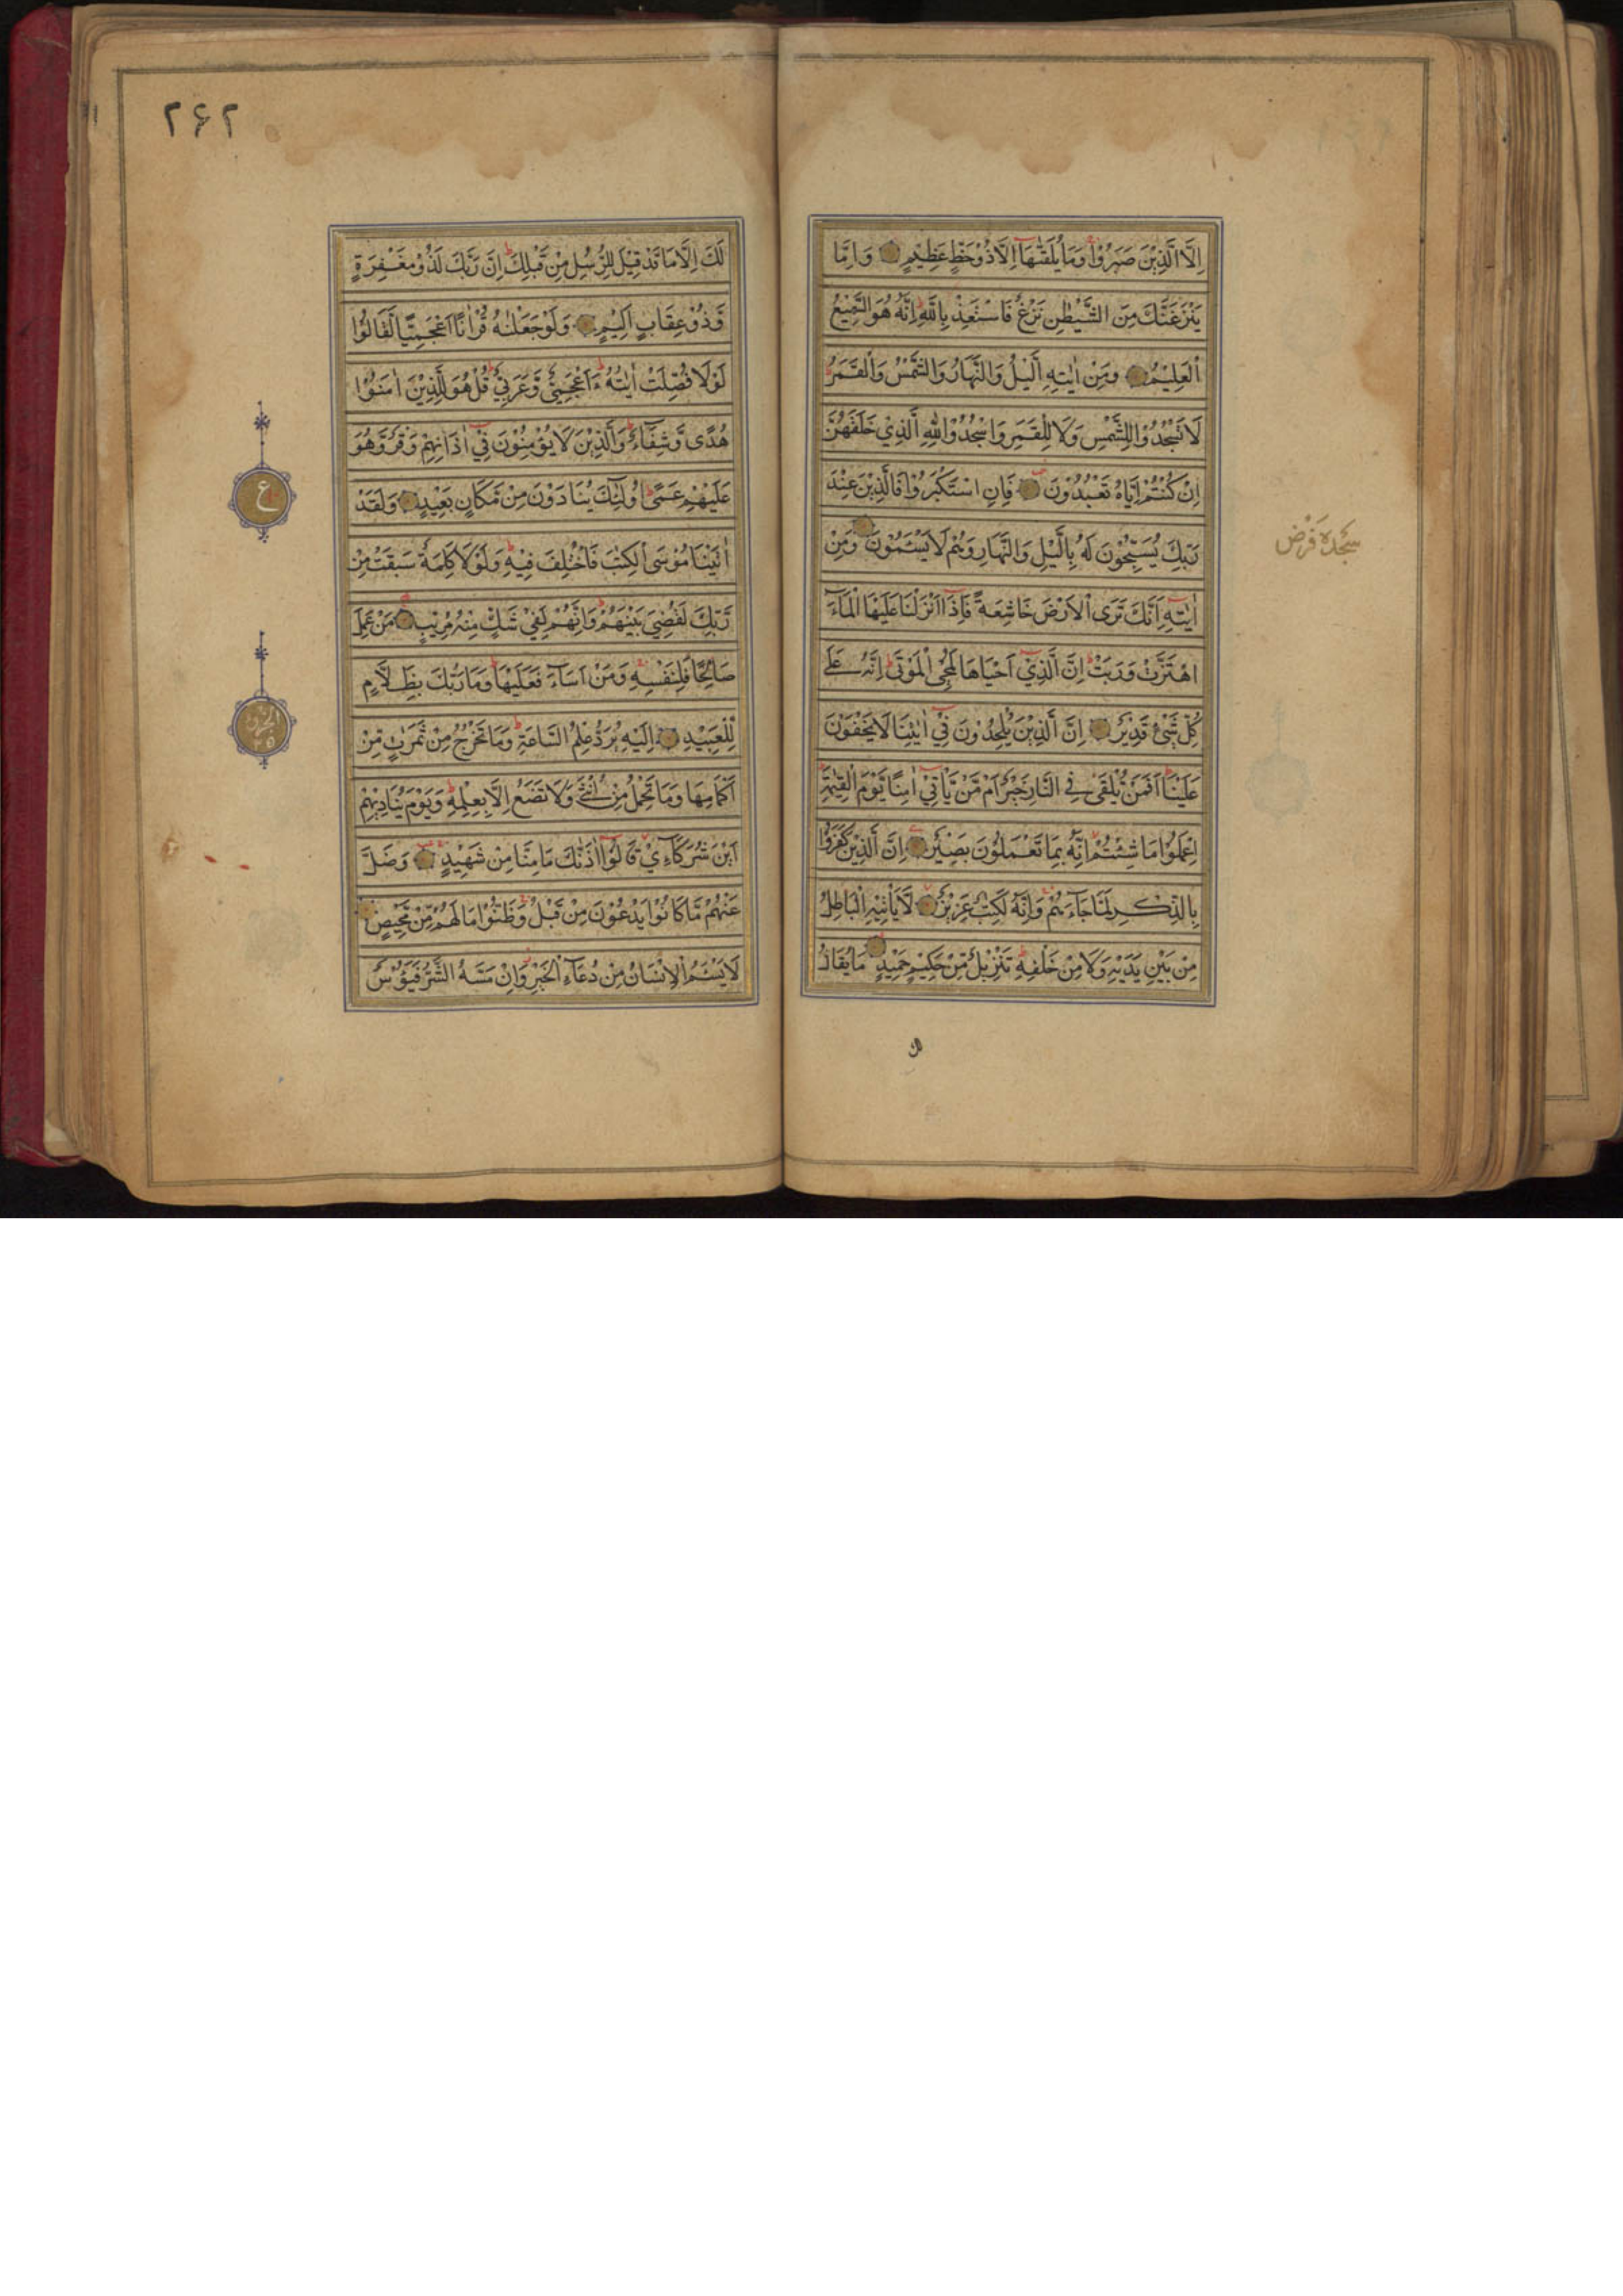 اِلَّا الَّذِيْنَ صَبَرُوْا وَمَا يُلَقّٰىهَآ اِلَّا ذُوْ حَظٍّ عَظِيْمٍ وَاِمَّا
يَنْزَغَنَّكَ مِنَ الشَّيْطٰنِ نَزْغٌ فَاسْتَعِذْ بِاللّٰهِ اِنَّهٗ هُوَ السَّمِيْعُ
الْعَلِيْمُ وَمِنْ اٰيٰتِهِ الَّيْلُ وَالنَّهَارُ وَالشَّمْسُ وَالْقَمَرُ
لَا تَسْجُدُوْا لِلشَّمْسِ وَلَا لِلْقَمَرِ وَاسْجُدُوْا لِلّٰهِ الَّذِيْ خَلَقَهُنَّ
اِنْ كُنْتُمْ اِيَّاهُ تَعْبُدُوْنَ فَاِنِ اسْتَكْبَرُوْا فَالَّذِيْنَ عِنْدَ
رَبِّكَ يُسَبِّحُوْنَ لَهٗ بِالَّيْلِ وَالنَّهَارِ وَهُمْ لَا يَسْئَمُوْنَ وَمِنْ
اٰيٰتِهٖٓ اَنَّكَ تَرَى الْاَرْضَ خَاشِعَةً فَاِذَآ اَنْزَلْنَا عَلَيْهَا الْمَآءَ
اهْتَزَّتْ وَرَبَتْ اِنَّ الَّذِيْٓ اَحْيَاهَا لَمُحْيِ الْمَوْتٰى اِنَّهٗ عَلٰى
كُلِّ شَيْءٍ قَدِيْرٌ اِنَّ الَّذِيْنَ يُلْحِدُوْنَ فِيْٓ اٰيٰتِنَا لَا يَخْفَوْنَ
عَلَيْنَا اَفَمَنْ يُّلْقٰى فِي النَّارِ خَيْرٌ اَمْ مَّنْ يَّاْتِيْٓ اٰمِنًا يَّوْمَ الْقِيٰمَةِ
اِعْمَلُوْا مَا شِئْتُمْ اِنَّهٗ بِمَا تَعْمَلُوْنَ بَصِيْرٌ اِنَّ الَّذِيْنَ كَفَرُوْا
بِالذِّكْرِ لَمَّا جَآءَهُمْ وَاِنَّهٗ لَكِتٰبٌ عَزِيْزٌ لَّا يَاْتِيْهِ الْبَاطِلُ
مِنْ بَيْنِ يَدَيْهِ وَلَا مِنْ خَلْفِهٖ تَنْزِيْلٌ مِّنْ حَكِيْمٍ حَمِيْدٍ مَا يُقَالُ
لك
سجدة فرض
۲۶۲
لَكَ اِلَّا مَا قَدْ قِيْلَ لِلرُّسُلِ مِنْ قَبْلِكَ اِنَّ رَبَّكَ لَذُوْ مَغْفِرَةٍ
وَّذُوْ عِقَابٍ اَلِيْمٍ وَلَوْ جَعَلْنٰهُ قُرْاٰنًا اَعْجَمِيًّا لَّقَالُوْا
لَوْلَا فُصِّلَتْ اٰيٰتُهٗ ءَاَعْجَمِيٌّ وَّعَرَبِيٌّ قُلْ هُوَ لِلَّذِيْنَ اٰمَنُوْا
هُدًى وَّشِفَآءٌ وَالَّذِيْنَ لَا يُؤْمِنُوْنَ فِيْٓ اٰذَانِهِمْ وَقْرٌ وَّهُوَ
عَلَيْهِمْ عَمًى اُولٰٓئِكَ يُنَادَوْنَ مِنْ مَّكَانٍ بَعِيْدٍ وَلَقَدْ
اٰتَيْنَا مُوْسَى الْكِتٰبَ فَاخْتُلِفَ فِيْهِ وَلَوْلَا كَلِمَةٌ سَبَقَتْ مِنْ
رَّبِّكَ لَقُضِيَ بَيْنَهُمْ وَاِنَّهُمْ لَفِيْ شَكٍّ مِّنْهُ مُرِيْبٍ مَنْ عَمِلَ
صَالِحًا فَلِنَفْسِهٖ وَمَنْ اَسَآءَ فَعَلَيْهَا وَمَا رَبُّكَ بِظَلَّامٍ
لِّلْعَبِيْدِ اِلَيْهِ يُرَدُّ عِلْمُ السَّاعَةِ وَمَا تَخْرُجُ مِنْ ثَمَرٰتٍ مِّنْ
اَكْمَامِهَا وَمَا تَحْمِلُ مِنْ اُنْثٰى وَلَا تَضَعُ اِلَّا بِعِلْمِهٖ وَيَوْمَ يُنَادِيْهِمْ
اَيْنَ شُرَكَآءِيْ قَالُوْٓا اٰذَنّٰكَ مَا مِنَّا مِنْ شَهِيْدٍ وَضَلَّ
عَنْهُمْ مَّا كَانُوْا يَدْعُوْنَ مِنْ قَبْلُ وَظَنُّوْا مَا لَهُمْ مِّنْ مَّحِيْصٍ
لَا يَسْئَمُ الْاِنْسَانُ مِنْ دُعَآءِ الْخَيْرِ وَاِنْ مَّسَّهُ الشَّرُّ فَيَئُوْسٌ
ع
الجزو
۲۵